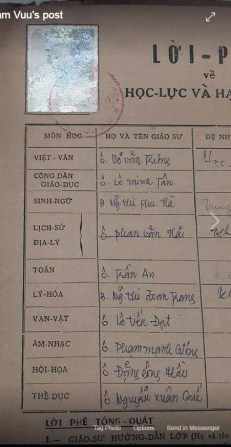 am Vuu's post
LỜI-P
về
HỌC-LỰC VÀ HẠ
MÔN HỌC HỌ VÀ TÊN GIÁO SƯ ĐỆ NH
VIỆT-VĂN ô. Võ văn
CÔNG DÂN GIÁO-DỤC ô. Lê minh Tân
SINH-NGỮ B. Ng thị Thu Hà
LỊCH-SỬ ĐỊA-LÝ ô. phan văn Hải
TOÁN ô. Trần An
LÝ-HÓA B. Ng thị Xuân Trang
VẠN-VẬT ô. Lê tiến Đạt
ÂM-NHẠC ô. Phạm mạnh
HỘI-HỌA ô. Đặng công Hầu
THỂ DỤC ô. Nguyễn xuân Quế
LỜI PHÊ TỔNG-QUÁT
Tag Photo Options Send in Messenger
1.— GIÁO-SƯ HƯỚNG-DẪN LỚP (Họ và tê